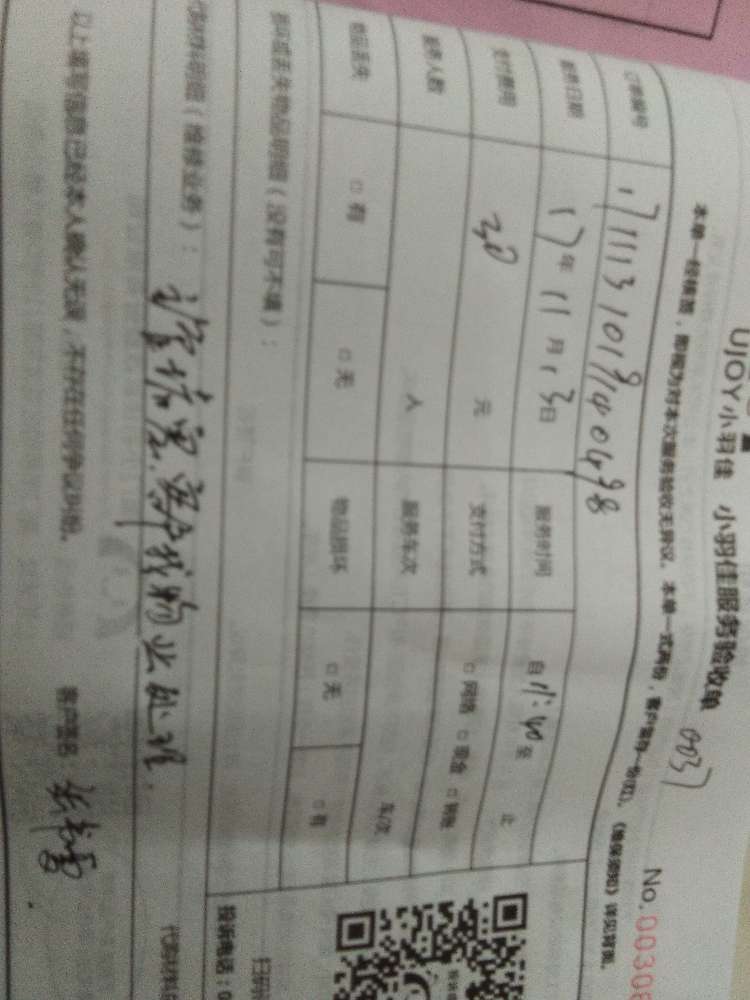 UJOY小羽佳 小羽佳服务验收单
0037
No.00308
本单一经填签，即视为对本次服务验收无异议。本单一式两份，客户留存一份(红)。《维保须知》详见背面。
订单编号 171113101911404498
服务日期 17年11月13日 服务时间 自 至 止
支付费用 30 元 支付方式 □网络 □现金 □转账
服务人数 人 服务车次 车次
物品丢失 □有 □无 物品损坏 □无 □有
损坏或丢失物品明细（没有可不填）：
代购材料明细（维修业务）：
客户找物业处理
以上填写信息已经本人确认无误，不存在任何争议纠纷。
客户签名
投诉电话：0